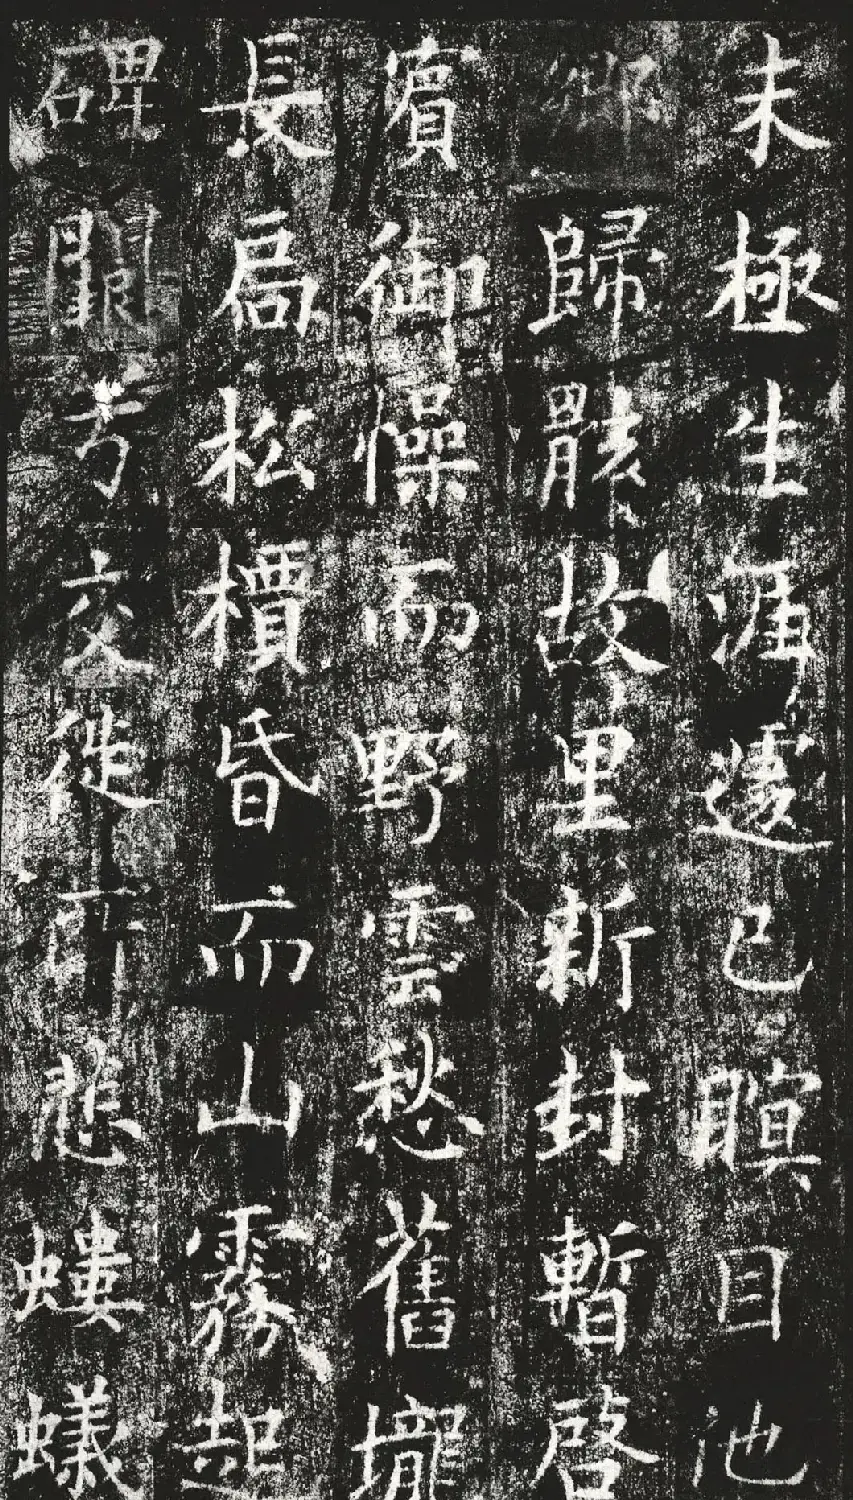 未極生涯遽已瞑目池
鄉歸骸故里新封暫啓
賓御懆而野雲愁舊壠
長扃松檟昏而山霧起
碑交徙所悲螻蟻